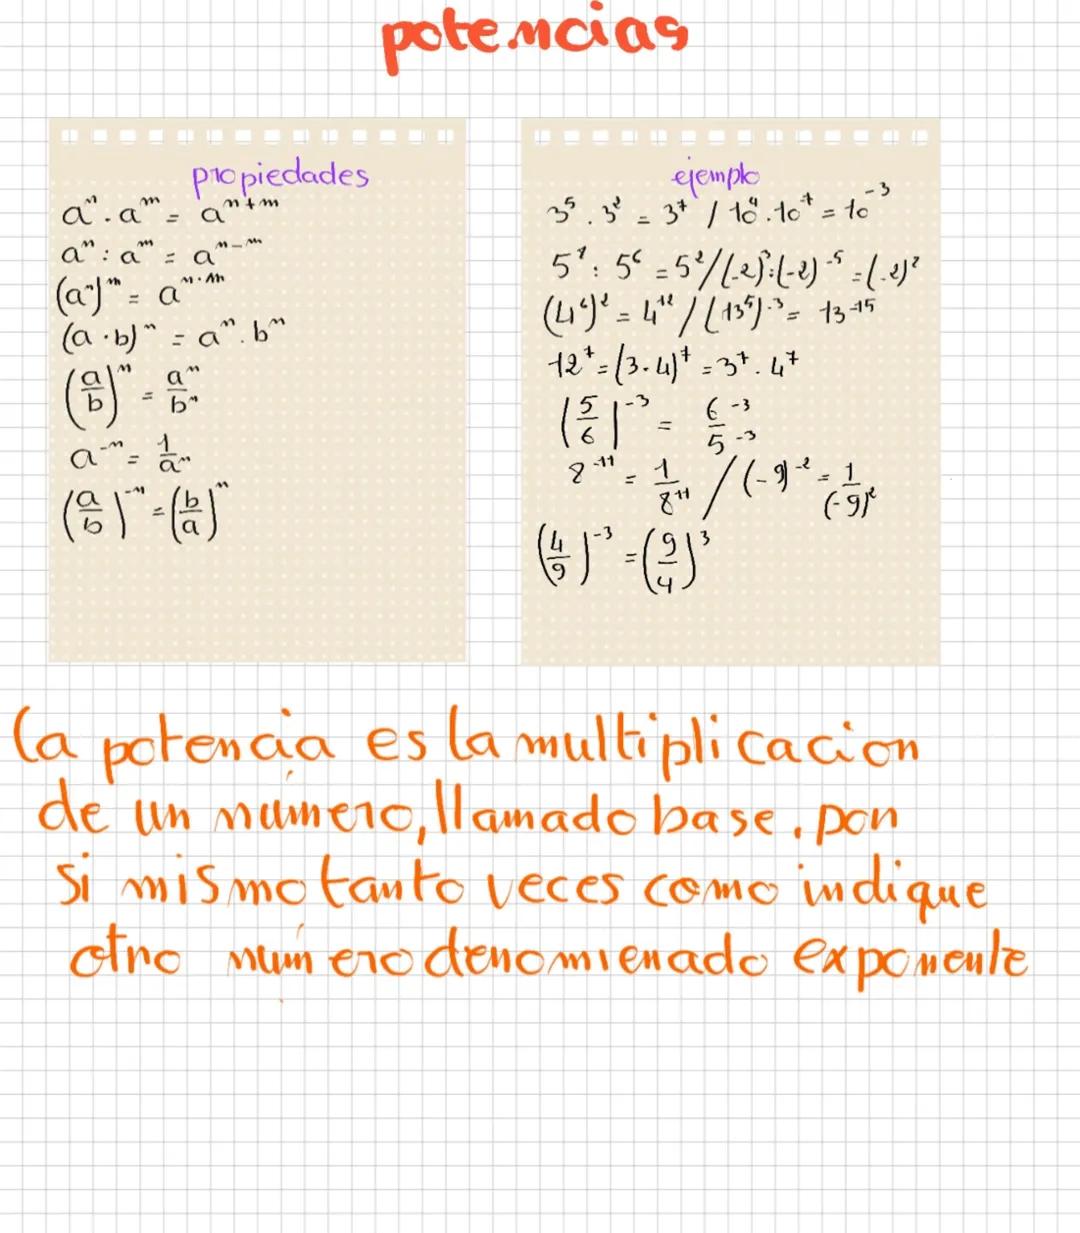 potencias
propiedades
aⁿ · aᵐ = aⁿ⁺ᵐ
aⁿ : aᵐ = aⁿ⁻ᵐ
(aⁿ)ᵐ = aⁿ·ᵐ
(a · b)ⁿ = aⁿ · bⁿ
(a/b)ⁿ = aⁿ/bⁿ
a⁻ⁿ = 1/aⁿ
(a/b)⁻ⁿ = (b/a)ⁿ
ejemplo
3⁵ · 3² = 3⁷ / 10⁴ · 10⁷ = 10⁻³
: 5⁶ = 5² / : (-2)⁻⁵ = (-2)²
(4⁶)² = 4¹² / (13⁵)⁻³ = 13⁻¹⁵
12⁷ = (3·4)⁷ = 3⁷ · 4⁷
(5/6)⁻³ = 6⁻³/5⁻³
8⁻¹¹ = 1/8¹¹ / (-9)⁻² = 1/(-9)²
(4/9)⁻³ = (9/4)³
la potencia es la multiplicacion
de un número, llamado base, por
si mismo tanto veces como indique
otro número denomienado exponente